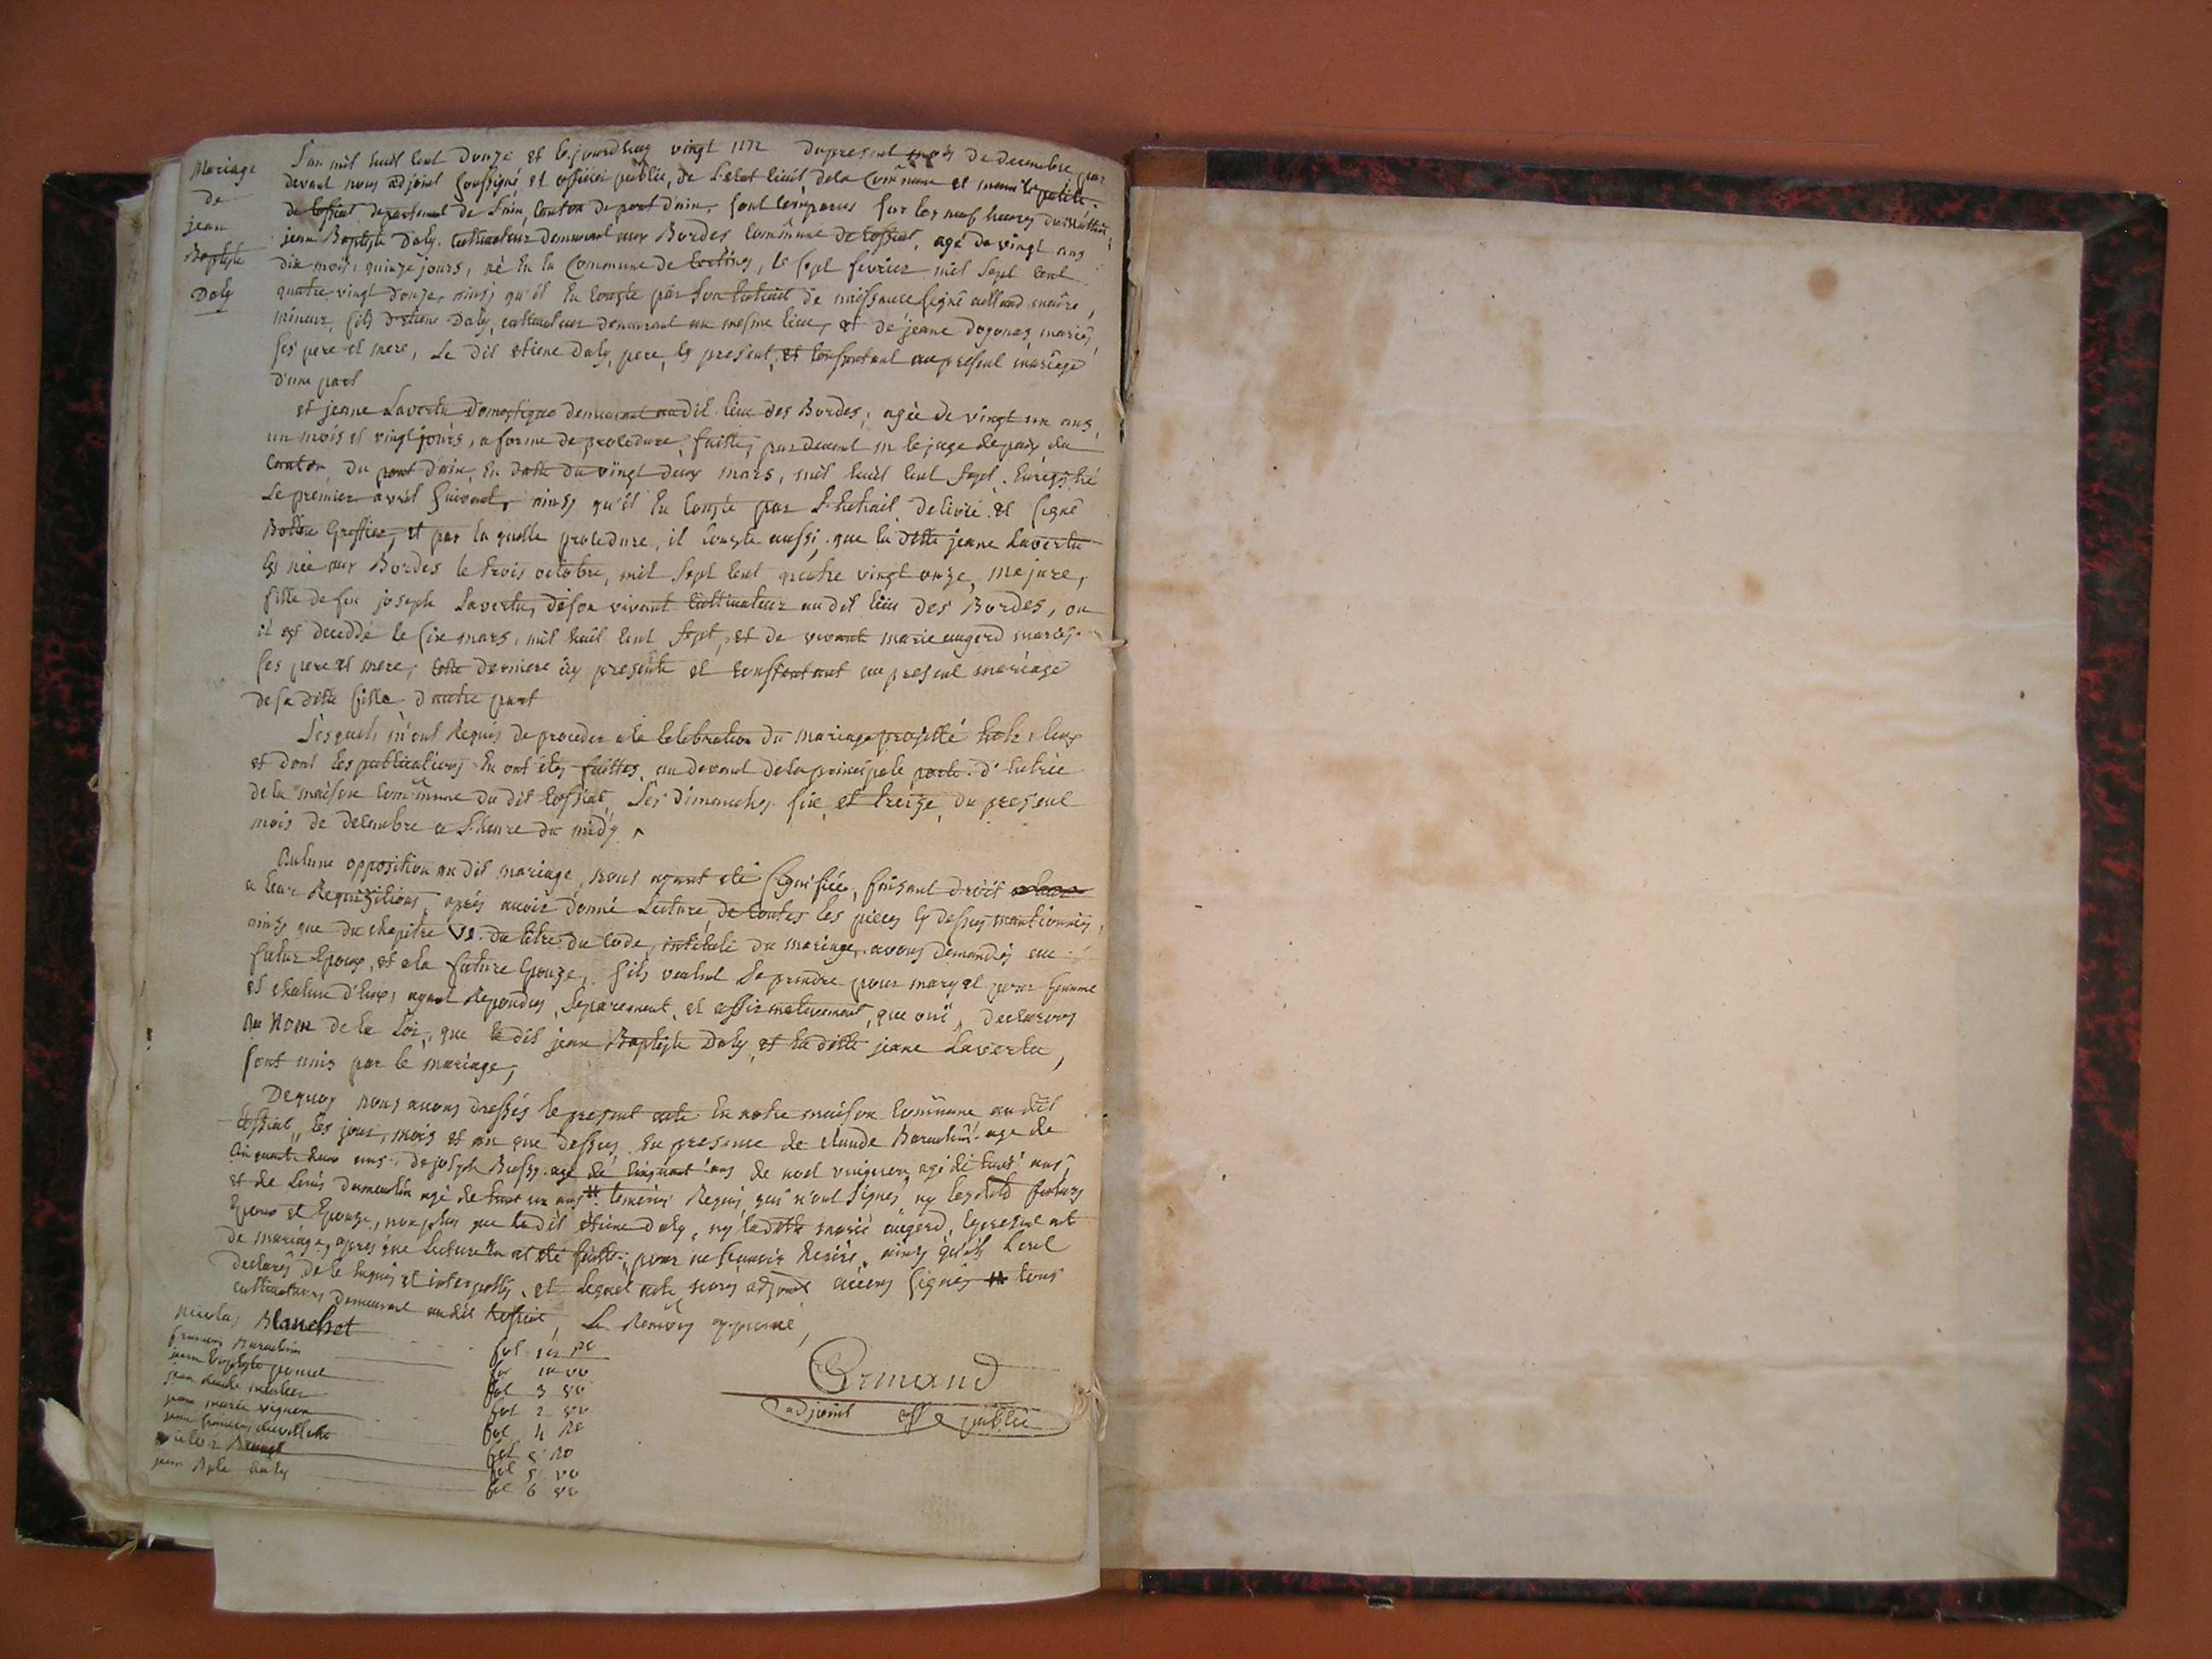 Mariage
de
jean
Baptiste
Daly
L'an mil huit cent douze et le jourd'huy vingt un du present mois de decembre par
devant nous adjoint soussigné, et officier public, de l'etat civil, de la Commune et municipalité
de tossiat departement de l'ain, canton de pont d'ain, sont comparus sur les neuf heures du mattin
jean Baptiste Daly, cultivateur demeurant aux Bordes commune de tossiat, agé de vingt ans
dix mois, quinze jours, né en la Commune de , le sept fevrier mil sept cent
quatre vingt douze, ainsy qu'il en conste par son extrait de naissance signé maire,
mineur, fils d'etiene Daly, cultivateur demeurant au mesme lieu, et de jeane dogonas, mariés,
ses pere et mere, Le dit etiene Daly, pere, ycy present, et consentant au present mariage
d'une part
et jeane Lavertu domestique demeurant au dit lieu des Bordes, agée de vingt un ans,
un mois et vingt jours, a forme de procedure, faitte, par devant mr le juge de paix du
canton du pont d'ain, en datte du vingt deux mars, mil huit cent sept, Enregistré
Le premier avril suivant, ainsy qu'il en conste par L'extrait delivré et signé
greffier, et par la quelle procedure, il conste aussi, que la ditte jeane Lavertu
est née aux Bordes le trois octobre, mil sept cent quatre vingt onze, majure,
fille de feu joseph Lavertu, de son vivant cultivateur au dit lieu des Bordes, ou
il est deceddé le six mars, mil huit cent sept, et de vivante marie augerd mariés
ses pere et mere, cette derniere icy presente et consentant au present mariage
de sa ditte fille d'autre part
Lesquels m'ont Requis de proceder a la celebration du mariage projetté entre eux
et dont les publications en ont etés faittes, au devant de la principale porte d'entrée
de la maison commune du dit tossiat, Les dimanches six et treize, du present
mois de decembre a L'heure de midy
Aucune opposition au dit mariage, nous ayant eté signifiée, faisant droit
a leur Requizitions, aprés avoir donné Lecture, de toutes les pieces cy dessus mantionnées,
ainsy que du chapitre VI. du titre du code, intitulé du mariage, avons demandés au
futur Epoux, et a la future Epouze, s'ils veulent se prendre pour mary et pour femme
et chacun d'eux, ayant Repondus, separement, et affirmativement, que oui, declarons
au Nom de la Loi, que le dit jean Baptiste Daly, et la ditte jeane Lavertu,
sont unis par le mariage,
De quoy nous avons dressés le present acte en notre maison commune au dit
tossiat, les jour, mois et an que dessus, en presence de claude Barachin agé de
cinquante deux ans, de joseph Buffy agé de cinquant ans de noel vuignon, agé de ans,
et de Louis dumoulin agé de un ans temoins Requis, qui n'ont signés ny les dits futurs
Epoux et Epouze, non plus que le dit etiene daly, ny la ditte marie augerd, le present act
de mariage, apres que Lecture en at eté faitte, pour ne sçavoir ecrire, ainsy qu'ils l'ont
declarés, de ce enquis et interpellés, et Lequel acte nous adjoint avons signés tous
cultivateurs demeurant au dit tossiat, Le Renvoy approuvé,
nicolas Blanchet
francois Barachin
jean Baptiste poncet
jean claude mercier
jean marie vignon
jean francois
victor
jean Bpte daly
fol 1er Ro
fol 1er vo
fol 3 vo
fol 2 vo
fol 4 Ro
fol 5 Ro
fol 5 vo
fol 6 vo
Ormand
adjoint off public